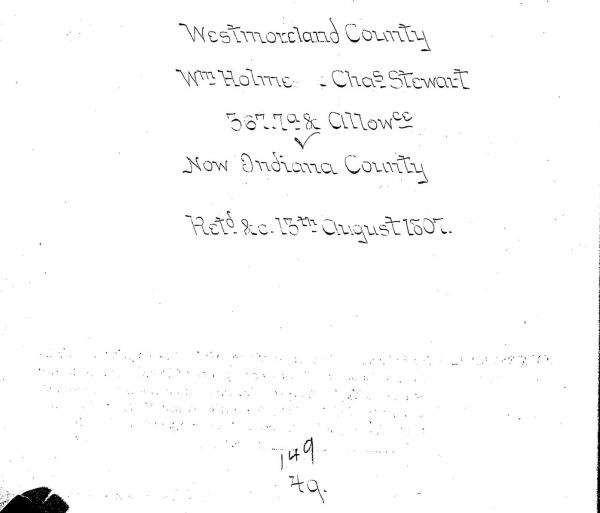 Westmoreland County
Wm Holme Chas Stewart
367.7a & Allowce
Now Indiana County
Retd &c. 13th August 1807.
149
79.